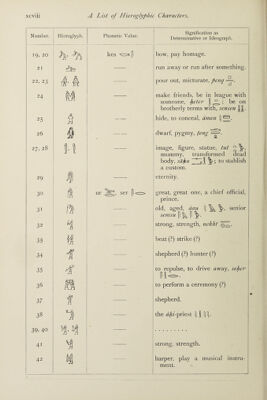 xcviii
A List of Hieroglyphic Characters.
Number.
Hieroglyph.
Phonetic Value.
Signification as
Determinative or Ideograph.
19, 20
kes
bow, pay homage.
21
run away or run after something.
22, 23
pour out, micturate,
24
make friends, be in league with
someone, be on
brotherly terms with,
25
hide, to conceal,
26
dwarf, pygmy,
27, 28
image, figure, statue,
mummy, transformed dead
body, to stablish
a custom.
29
eternity.
30
ur ser
great, great one, a chief official,
prince.
31
old, aged, senior
32
strong, strength,
33
beat (?) strike (?)
34
shepherd (?) hunter (?)
35
to repulse, to drive away,
36
to perform a ceremony (?)
37
shepherd.
38
the priest
39, 40
. . . . . . . . .
41
strong, strength.
42
harper, play a musical instru-
ment.